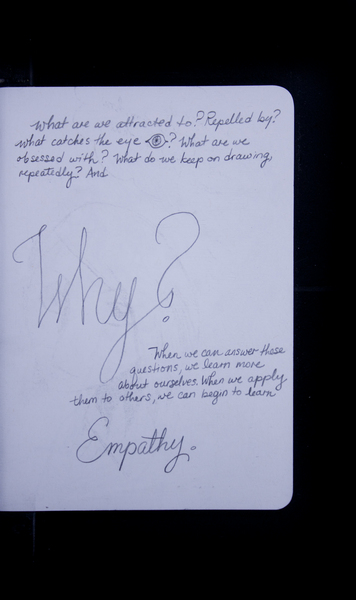 What are we attracted to? Repelled by?
What catches the eye? What are we
obsessed with? What do we keep on drawing,
repeatedly? And
Why?
When we can answer those
questions, we learn more
about ourselves. When we apply
them to others, we can begin to learn
Empathy.